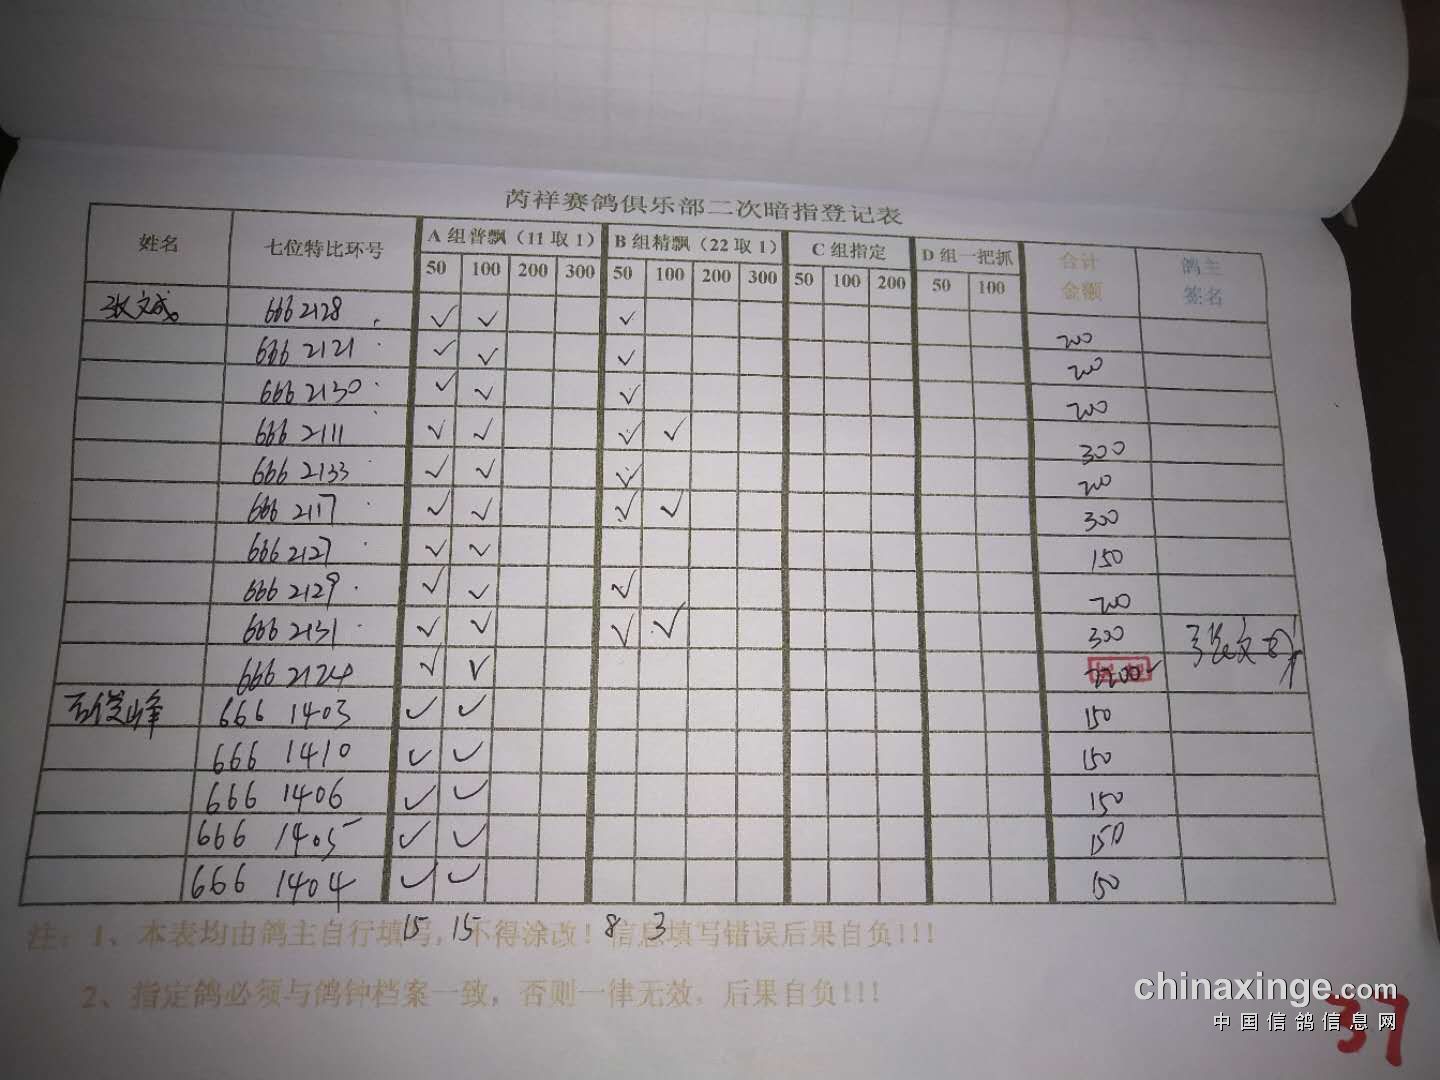 芮祥赛鸽俱乐部二次暗指登记表
姓名 七位特比环号 A 组普飘（11 取 1） B 组精飘（22 取 1） C 组指定 D 组一把抓 合计金额 鸽主签名
50 100 200 300 50 100 200 300 50 100 200 50 100
张文成 666 2128 ✓ ✓ ✓ 200
666 2121 ✓ ✓ ✓ 200
666 2130 ✓ ✓ ✓ 200
666 2111 ✓ ✓ ✓ ✓ 300
666 2133 ✓ ✓ ✓ 200
666 2117 ✓ ✓ ✓ ✓ 300
666 2127 ✓ ✓ 150
666 2129 ✓ ✓ ✓ 200
666 2131 ✓ ✓ ✓ ✓ 300 张文
666 2124 ✓ ✓ 2200
俊峰 666 1403 ✓ ✓ 150
666 1410 ✓ ✓ 150
666 1406 ✓ ✓ 150
666 1405 ✓ ✓ 150
666 1404 ✓ ✓ 150
15 15 8 3
注：1、本表均由鸽主自行填写，不得涂改！信息填写错误后果自负!!!
2、指定鸽必须与鸽钟档案一致，否则一律无效，后果自负!!!
chinaxinge.com
中国信鸽信息网
37